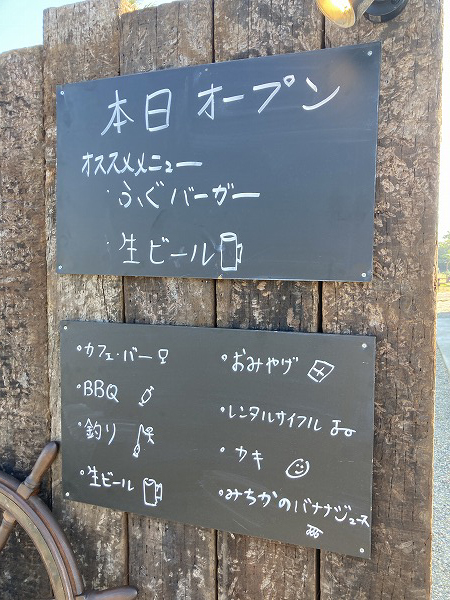 本日オープン
オススメメニュー
・ふぐバーガー
・生ビール
・カフェ・バー
・BBQ
・釣り
・生ビール
・おみやげ
・レンタルサイクル
・カキ
・みちかのバナナジュース